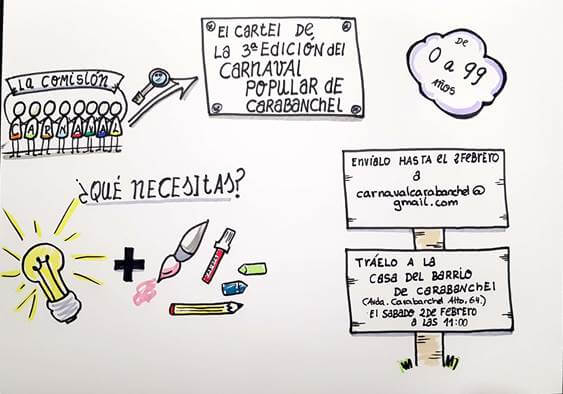 LA COMISIÓN
CARNAVAL
EL CARTEL DE
LA 3ª EDICIÓN DEL
CARNAVAL
POPULAR DE
CARABANCHEL
DE
0 a 99
AÑOS
¿QUÉ NECESITAS?
ENVÍALO HASTA EL 2 FEBRERO
a
carnavalcarabanchel@
gmail.com
TRÁELO A LA
CASA DEL BARRIO
DE CARABANCHEL
(Avda. Carabanchel Alto, 64.)
EL SABADO 2 DE FEBRERO
A LAS 11:00